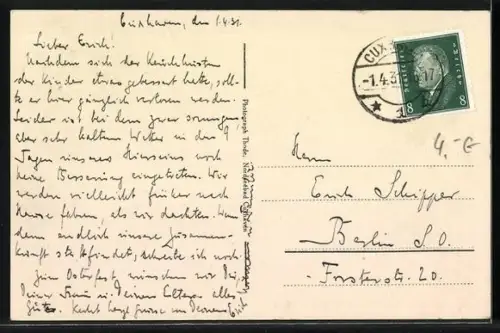 Cuxhaven, den 1.4.31.
Lieber Erich!
Nachdem sich der Keuchhusten
der Kinder etwas gebessert hatte, soll-
te er hier gänzlich verloren werden.
Leider ist bei dem zwar sonnigen
aber sehr kalten Wetter in den 9
Tagen unseres Hierseins noch
keine Besserung eingetreten. Wir
werden vielleicht früher nach
Hause fahren, als wir dachten. Wann
dann endlich unsere Zusammen-
kunft stattfindet, schreibe ich noch.
Zum Osterfest wünschen wir Dir,
Deiner Frau u. Deinen Eltern alles
Gute. Recht herzl. Grüsse von Deinem
Erich
Photograph Thode, Nordseebad Cuxhaven
CUX
-1.4.3
17
DEUTSCHES REICH
8 8
4,- €
Herrn
Erich Schipper
Berlin S.O.
Forsterstr. 20.